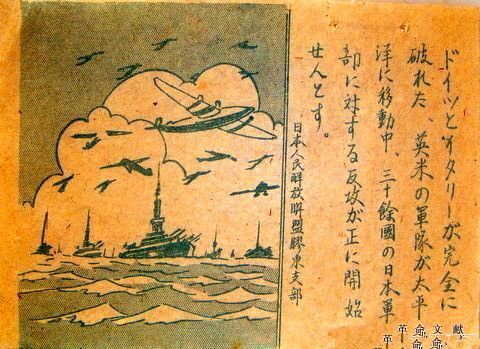 ドイツとイタリーが完全に
破れた、英米の軍隊が太平
洋に移動中、三十餘國の日本軍
部に対する反攻が正に開始
せんとす。
日本人民解放聯盟膠東支部
革命文献
革命